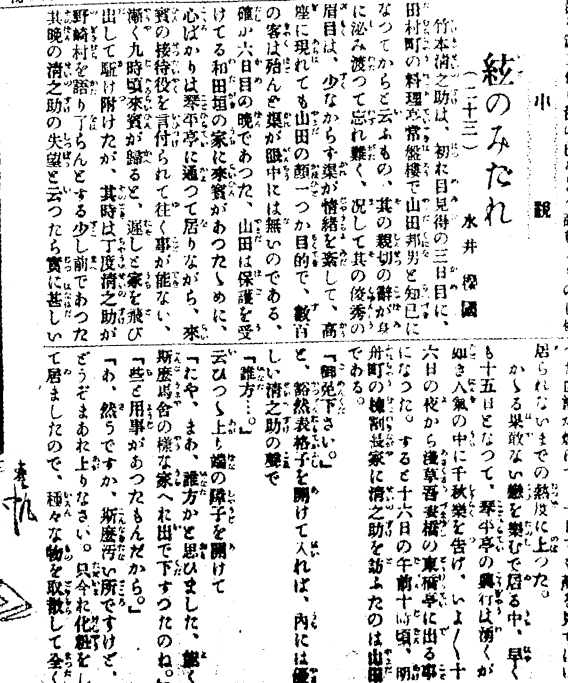 小説
絃のみだれ
(二十三)
水井
竹本清之助は、初に目見得の三日目に、
田村町の料理亭常盤樓で山田邦男と知己に
なつてからと云ふもの、其の親切の辭が身
に泌み渡つて忘れ難く、況して其の俊秀の
眉目は、少なからず渠が情緒を紊して、高
座に現れても山田の顔一つか目的で、數百
の客は殆んど渠が眼中には無いのである、
確か六日目の晩であつた、山田は保護を受
けてる和田垣の家に來賓があつたゝめに、
心ばかりは琴平亭に通つて居りながら、來
賓の接待役を言付られて往く事が能ない、
漸く九時頃來賓が歸ると、遲しと家を飛び
出して駈け附けたが、其時は丁度清之助が
野崎村を語り了らんとする少し前であつた
其晩の清之助の失望と云つたら實に甚しい
居られないまでの熱度に上つた。
かゝる果敢ない戀を樂むで居る中、早く
も十五日となつて、琴平亭の興行は湧くが
如き人氣の中に千秋樂を告げ、いよ〱十
六日の夜から淺草吾妻橋の東橋亭に出る事
になつた。すると十六日の午前十時頃、明
舟町の棟割長家に清之助を訪ふたのは山田
である。
「御免下さい。」
と、豁然表格子を開けて入れば、内には優
しい清之助の聲で
「誰方…。」
云ひつゝ上り端の障子を開けて
「たや、まあ、誰方かと思ひました、能く
斯麼馬舍の樣な家へれ出で下すつたのね。」
「些と用事があつたもんだから。」
「あ、然うですか、斯麼汚い所ですけど、
どうぞまあれ上りなさい。只今れ化粧をし
て居ましたので、種々な物を取散して全く